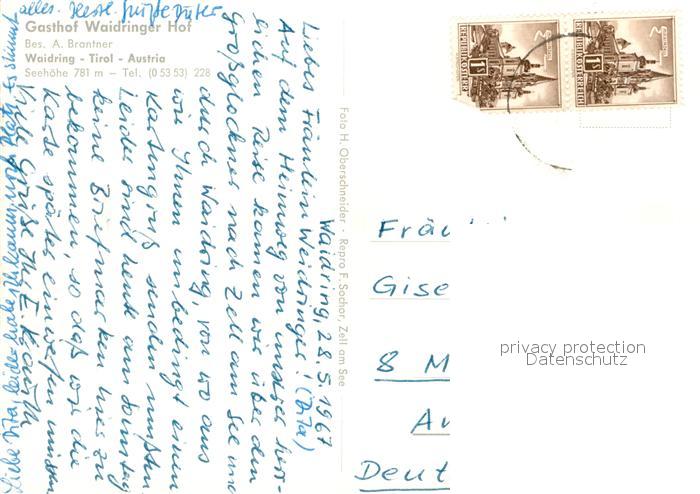 Gasthof Waidringer Hof
Bes. A. Brantner
Waidring - Tirol - Austria
Seehöhe 781 m — Tel. (0 53 53) 228
Waidring, 28.5.1967
Liebes Fräulein Weidringer! (Vita)
Auf dem Heimweg von unserer herr-
lichen Reise kamen wir über den
Großglockner nach Zell am See und
durch Waidring, von wo aus
wir Ihnen unbedingt einen
Kartengruß senden mußten.
Leider sind heute am Sonntag
keine Briefmarken hier zu
bekommen, so daß wir die
Karte später einwerfen müssen.
Viele Grüße Ihr E.
Liebe Vita, leider habe ich kaum noch Platz. Es stimmt
alles. Herzl. Grüße
Foto H. Oberschneider - Repro F. Sochor, Zell am See
REPUBLIK ÖSTERREICH
1S
REPUBLIK ÖSTERREICH
1S
Fräu
Gise
8 M
Au
Deut
privacy protection
Datenschutz